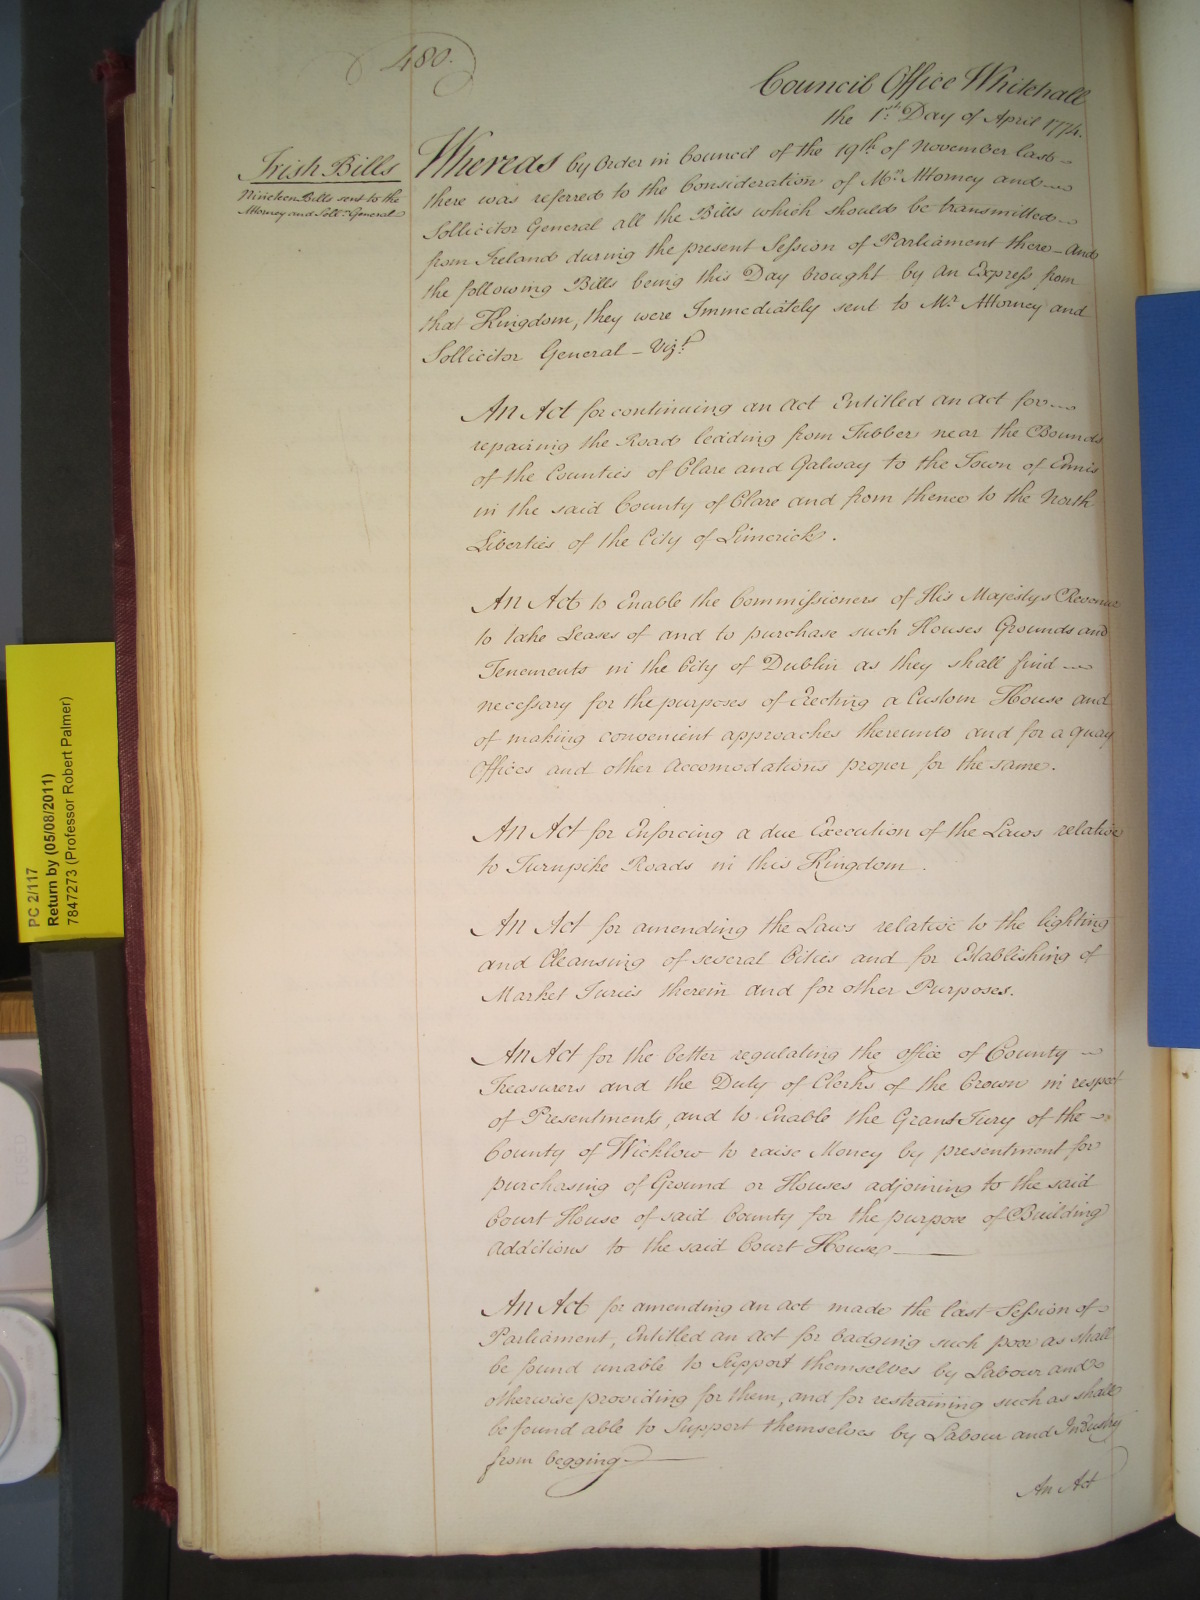 480.
Council Office Whitehall
the 1st. Day of April 1774.
Irish Bills
Nineteen Bills sent to the
Attorney and Sollr. General
Whereas by Order in Council of the 19th. of November last
there was referred to the Consideration of Mr. Attorney and
Sollicitor General all the Bills which should be transmitted
from Ireland during the present Session of Parliament there - And
the following Bills being this Day brought by an Express from
that Kingdom, they were Immediately sent to Mr. Attorney and
Sollicitor General - Vizt.
An Act for continuing an Act Entitled an Act for
repairing the Road leading from Tubber near the Bounds
of the Counties of Clare and Galway to the Town of Ennis
in the said County of Clare and from thence to the North
Liberties of the City of Limerick.
An Act to Enable the Commissioners of His Majestys Revenue
to take Leases of and to purchase such Houses Grounds and
Tenements in the City of Dublin as they shall find
necessary for the purposes of Erecting a Custom House and
of making convenient approaches thereunto and for a quay
Offices and other Accomodations proper for the same.
An Act for Enforcing a due Execution of the Laws relative
to Turnpike Roads in this Kingdom.
An Act for amending the Laws relative to the lighting
and Cleansing of several Cities and for Establishing of
Market Juries therein and for other Purposes.
An Act for the better regulating the office of County
Treasurers and the Duty of Clerks of the Crown in respect
of Presentments, and to Enable the Grand Jury of the
County of Wicklow to raise Money by presentment for
purchasing of Ground or Houses adjoining to the said
Court House of said County for the purpose of Building
Additions to the said Court House
An Act for amending an act made the last Session of
Parliament, Entitled an act for badging such poor as shall
be found unable to Support themselves by Labour and
otherwise providing for them, and for restraining such as shall
be found able to Support themselves by Labour and Industry
from begging
An Act
PC 2/117
Return by (05/08/2011)
7847273 (Professor Robert Palmer)